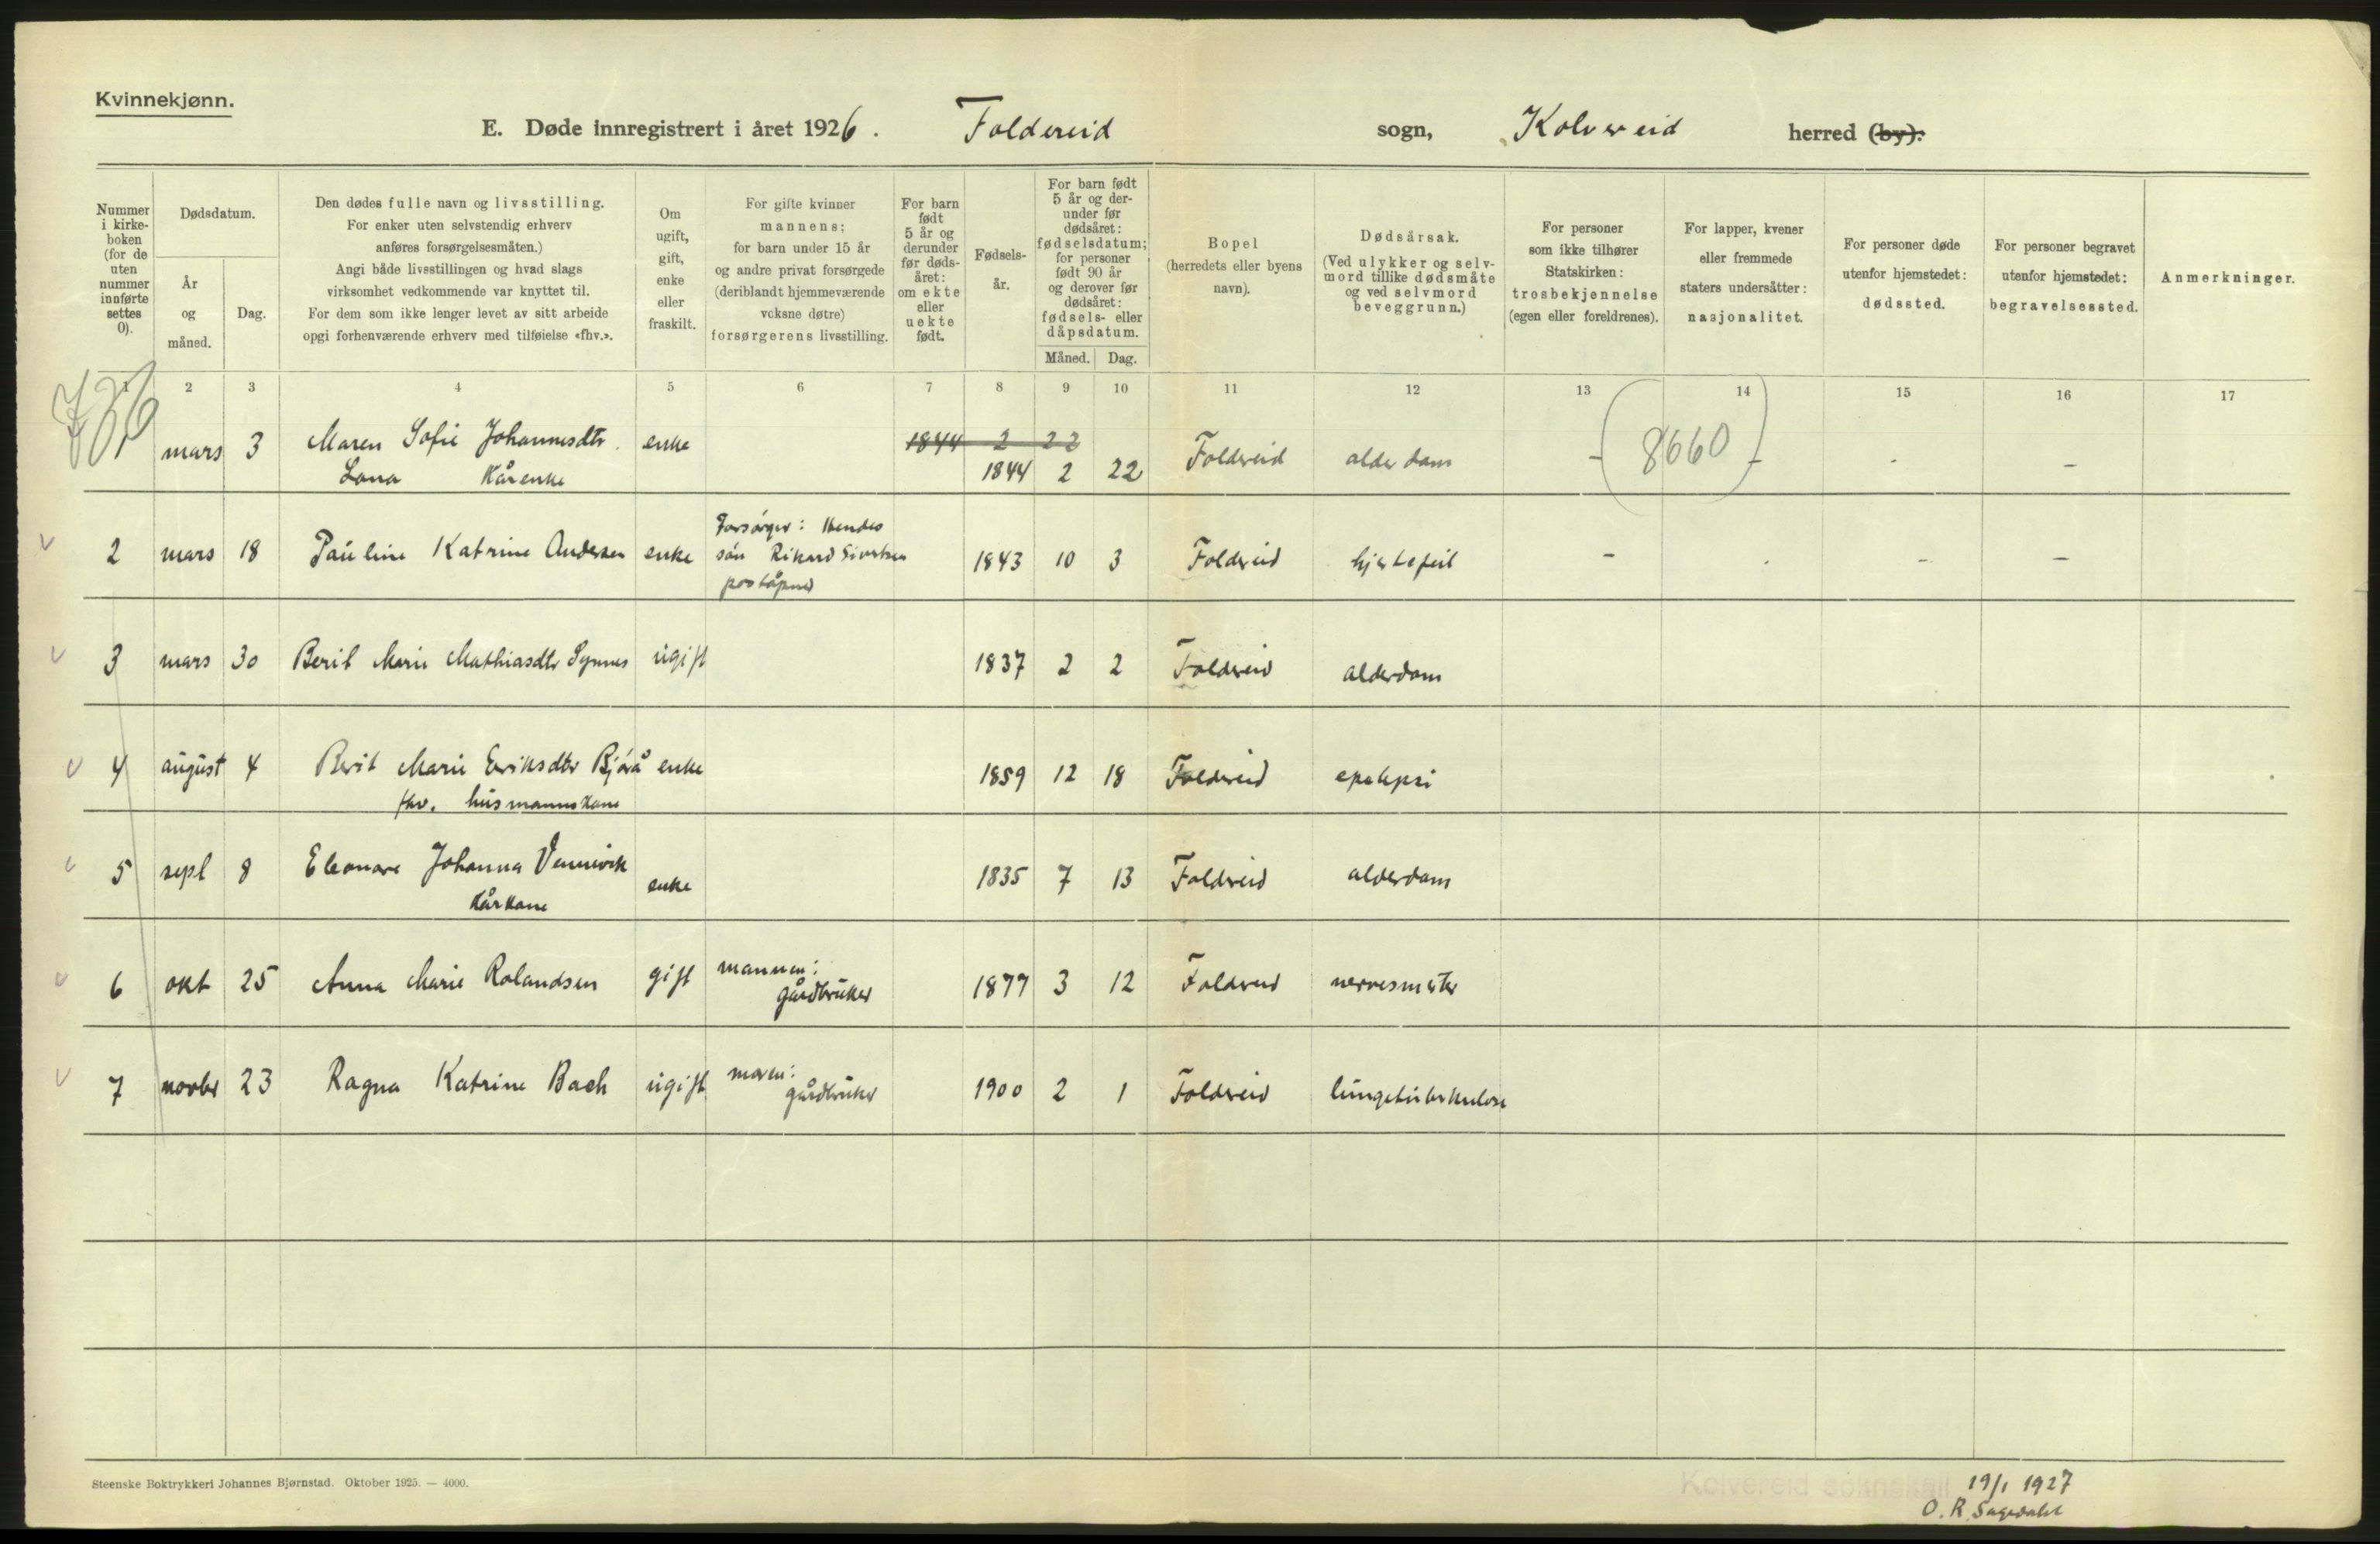 Kvinnekjønn.
E. Døde innregistrert i året 1926. Foldereid sogn, Kolvereid herred (by).
Nummer i kirke-boken (for de uten nummer innførte settes 0).
Dødsdatum.
År og måned.
Dag.
Den dødes fulle navn og livsstilling.
For enker uten selvstendig erhverv
anføres forsørgelsesmåten.)
Angi både livsstillingen og hvad slags
virksomhet vedkommende var knyttet til.
For dem som ikke lenger levet av sitt arbeide
opgi forhenværende erhverv med tilføielse «fhv.».
Om ugift, gift, enke eller fraskilt.
For gifte kvinner
mannens;
for barn under 15 år
og andre privat forsørgede
(deriblandt hjemmeværende
voksne døtre)
forsørgerens livsstilling.
For barn født 5 år og derunder før døds-året: om ekte eller uekte født.
Fødsels-år.
For barn født 5 år og der-under før dødsåret: fødselsdatum; for personer født 90 år og derover før dødsåret: fødsels- eller dåpsdatum.
Måned. Dag.
Bopel
(herredets eller byens
navn).
Dødsårsak.
(Ved ulykker og selv-
mord tillike dødsmåte
og ved selvmord
beveggrunn.)
For personer
som ikke tilhører
Statskirken:
trosbekjennelse
(egen eller foreldrenes).
For lapper, kvener
eller fremmede
staters undersåtter:
nasjonalitet.
For personer døde
utenfor hjemstedet:
dødssted.
For personer begravet
utenfor hjemstedet:
begravelsessted.
Anmerkninger.
1 2 3 4 5 6 7 8 9 10 11 12 13 14 15 16 17
1 mars 3 Maren Sofie Johannesdtr. enke 1844 2 22
Lona Kårenke 1844 2 22 Foldereid alderdom - (8660) - - -
2 mars 18 Pauline Katrine Andersen enke Forsørger: Hendes
søn Rikard Sivertsen
poståpner 1843 10 3 Foldereid hjertefeil - - - -
3 mars 30 Berit Marie Mathiasdtr Synnes ugift 1837 2 2 Foldereid alderdom
4 august 4 Berit Marie Eriksdtr Bjørå enke 1859 12 18 Foldereid epelepsi
fhv. husmannskone
5 sept 8 Eleonore Johanna Vennevik enke 1835 7 13 Foldereid alderdom
Kårkone
6 okt 25 Anna Marie Rolandsen gift mannen:
gårdbruker 1877 3 12 Foldereid nervesmerter
7 novbr 23 Ragna Katrine Bach ugift moren:
gårdbruker 1900 2 1 Foldereid lungetuberkulose
Steenske Boktrykkeri Johannes Bjørnstad. Oktober 1925. — 4000.
Kolvereid soknekall 19/1 1927
O. R. Sagedahl